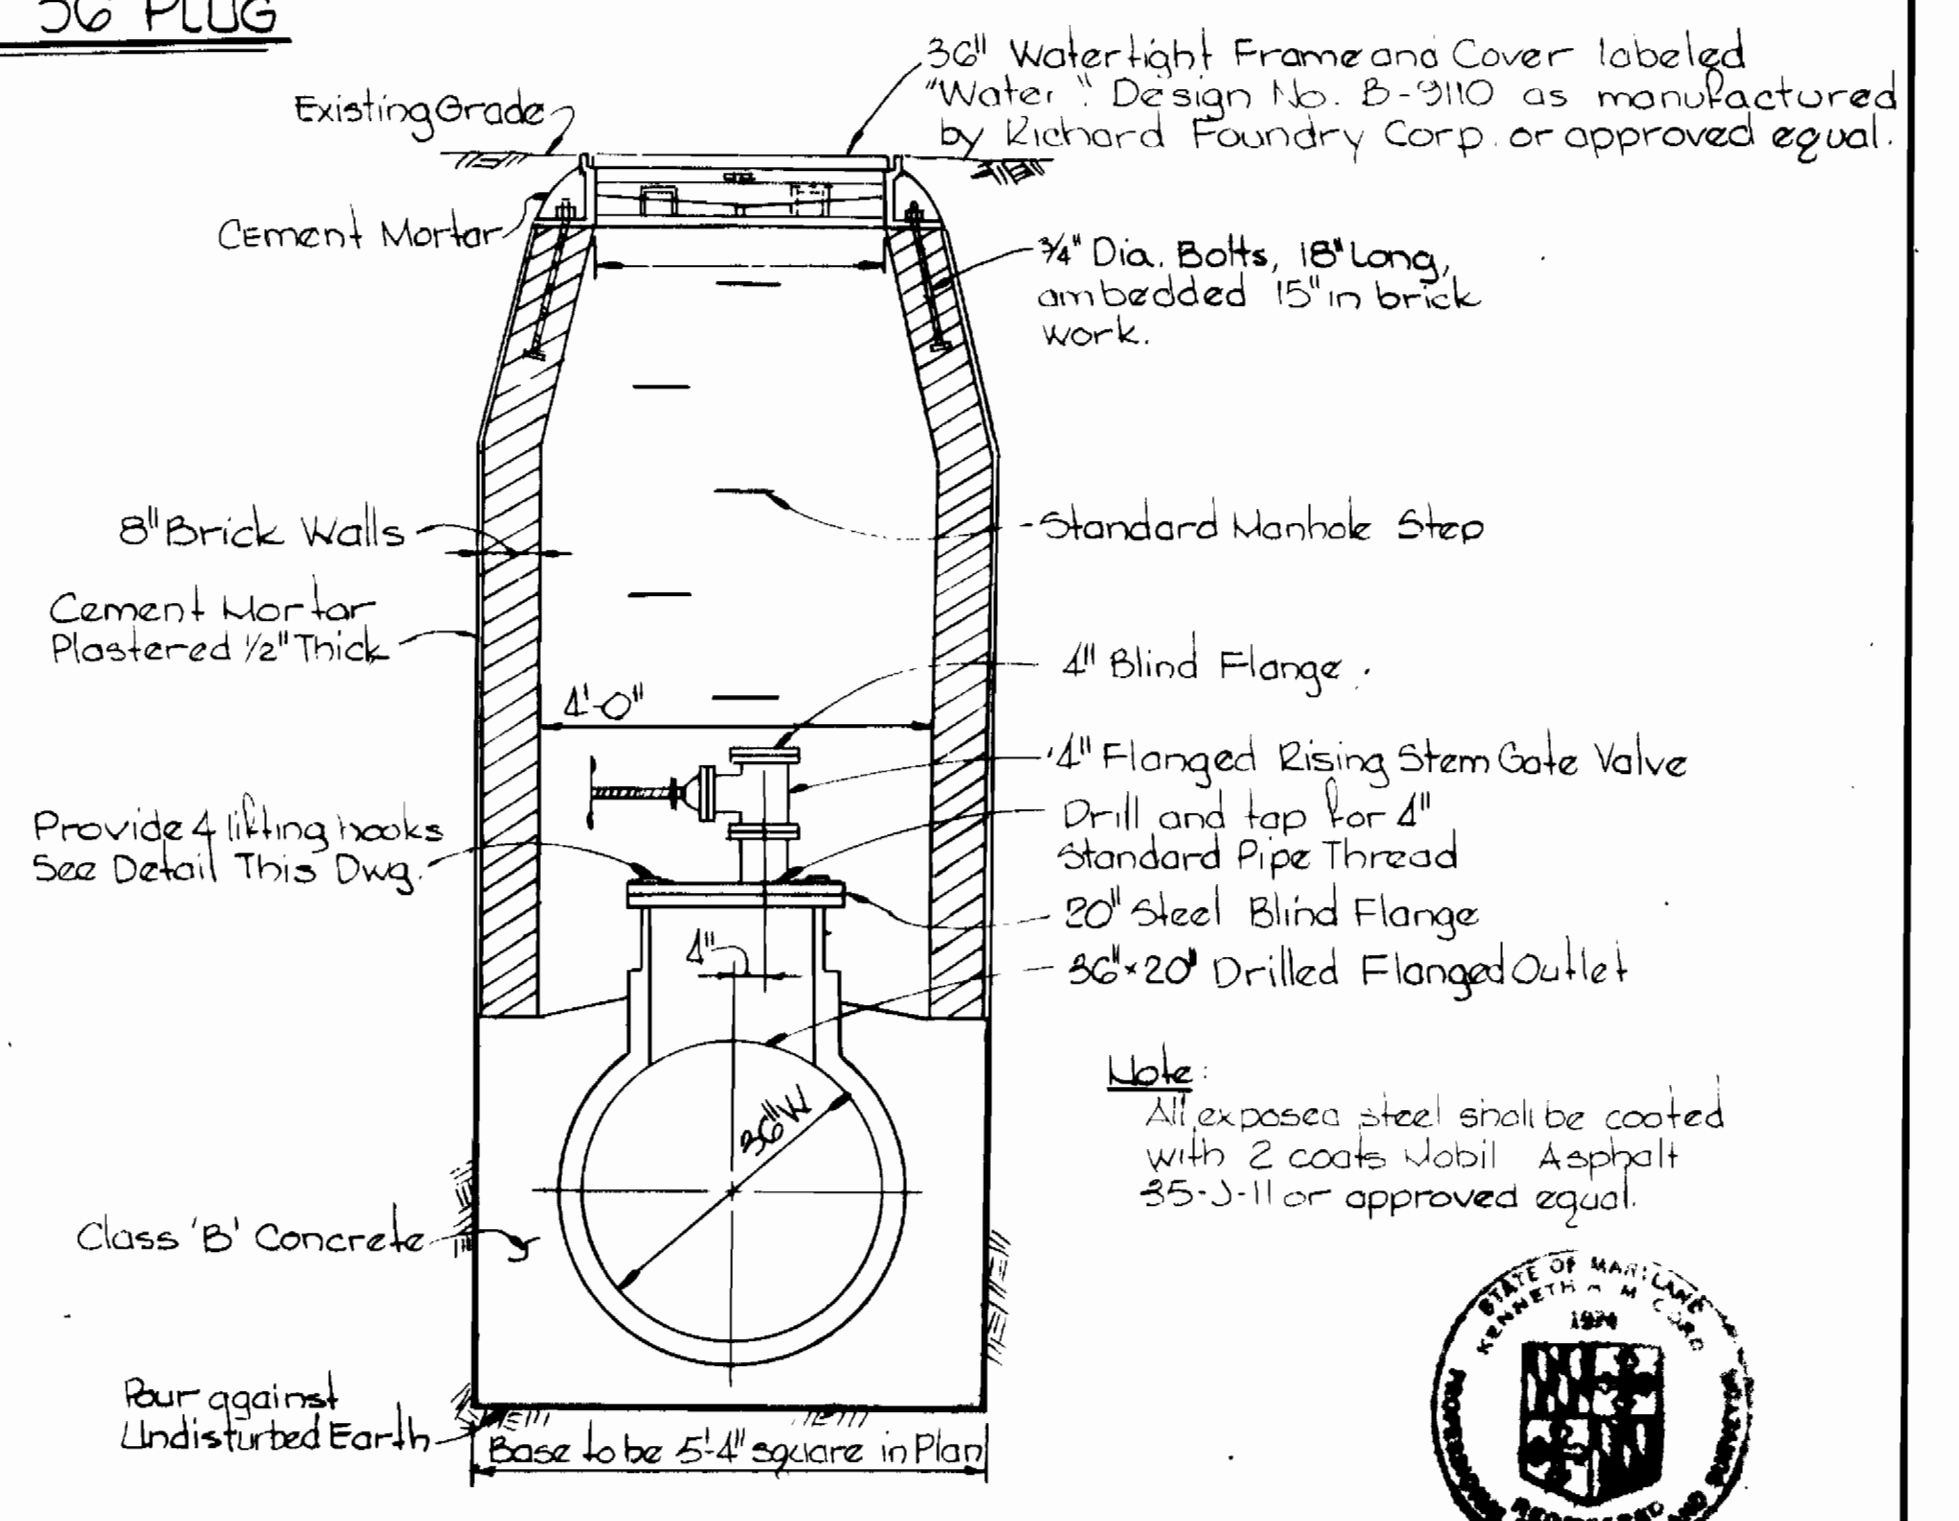 36 PLUG
36" Watertight Frame and Cover labeled
"Water". Design No. B-9110 as manufactured
by Richard Foundry Corp. or approved equal.
Existing Grade
Cement Mortar
3/4" Dia. Bolts, 18" Long,
ambedded 15" in brick
work.
8" Brick Walls
Standard Manhole Step
Cement Mortar
Plastered 1/2" Thick
4" Blind Flange
4'-0"
4" Flanged Rising Stem Gate Valve
Provide 4 lifting hooks
See Detail This Dwg.
Drill and tap for 4"
Standard Pipe Thread
20" Steel Blind Flange
4"
36" × 20" Drilled Flanged Outlet
Note:
All exposed steel shall be coated
with 2 coats Mobil Asphalt
35-J-11 or approved equal.
36" W
Class 'B' Concrete
Pour against
Undisturbed Earth
Base to be 5'-4" square in Plan
STATE OF MARYLAND
KENNETH A. M CORD
1974
PROFESSIONAL
REGISTERED